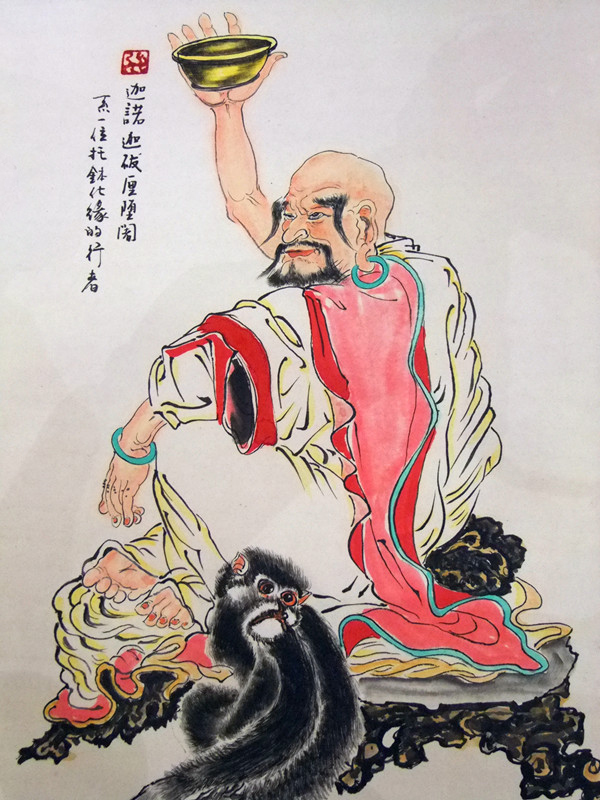 迦諾迦跋厘堕闍
系一位托鉢化緣的行者